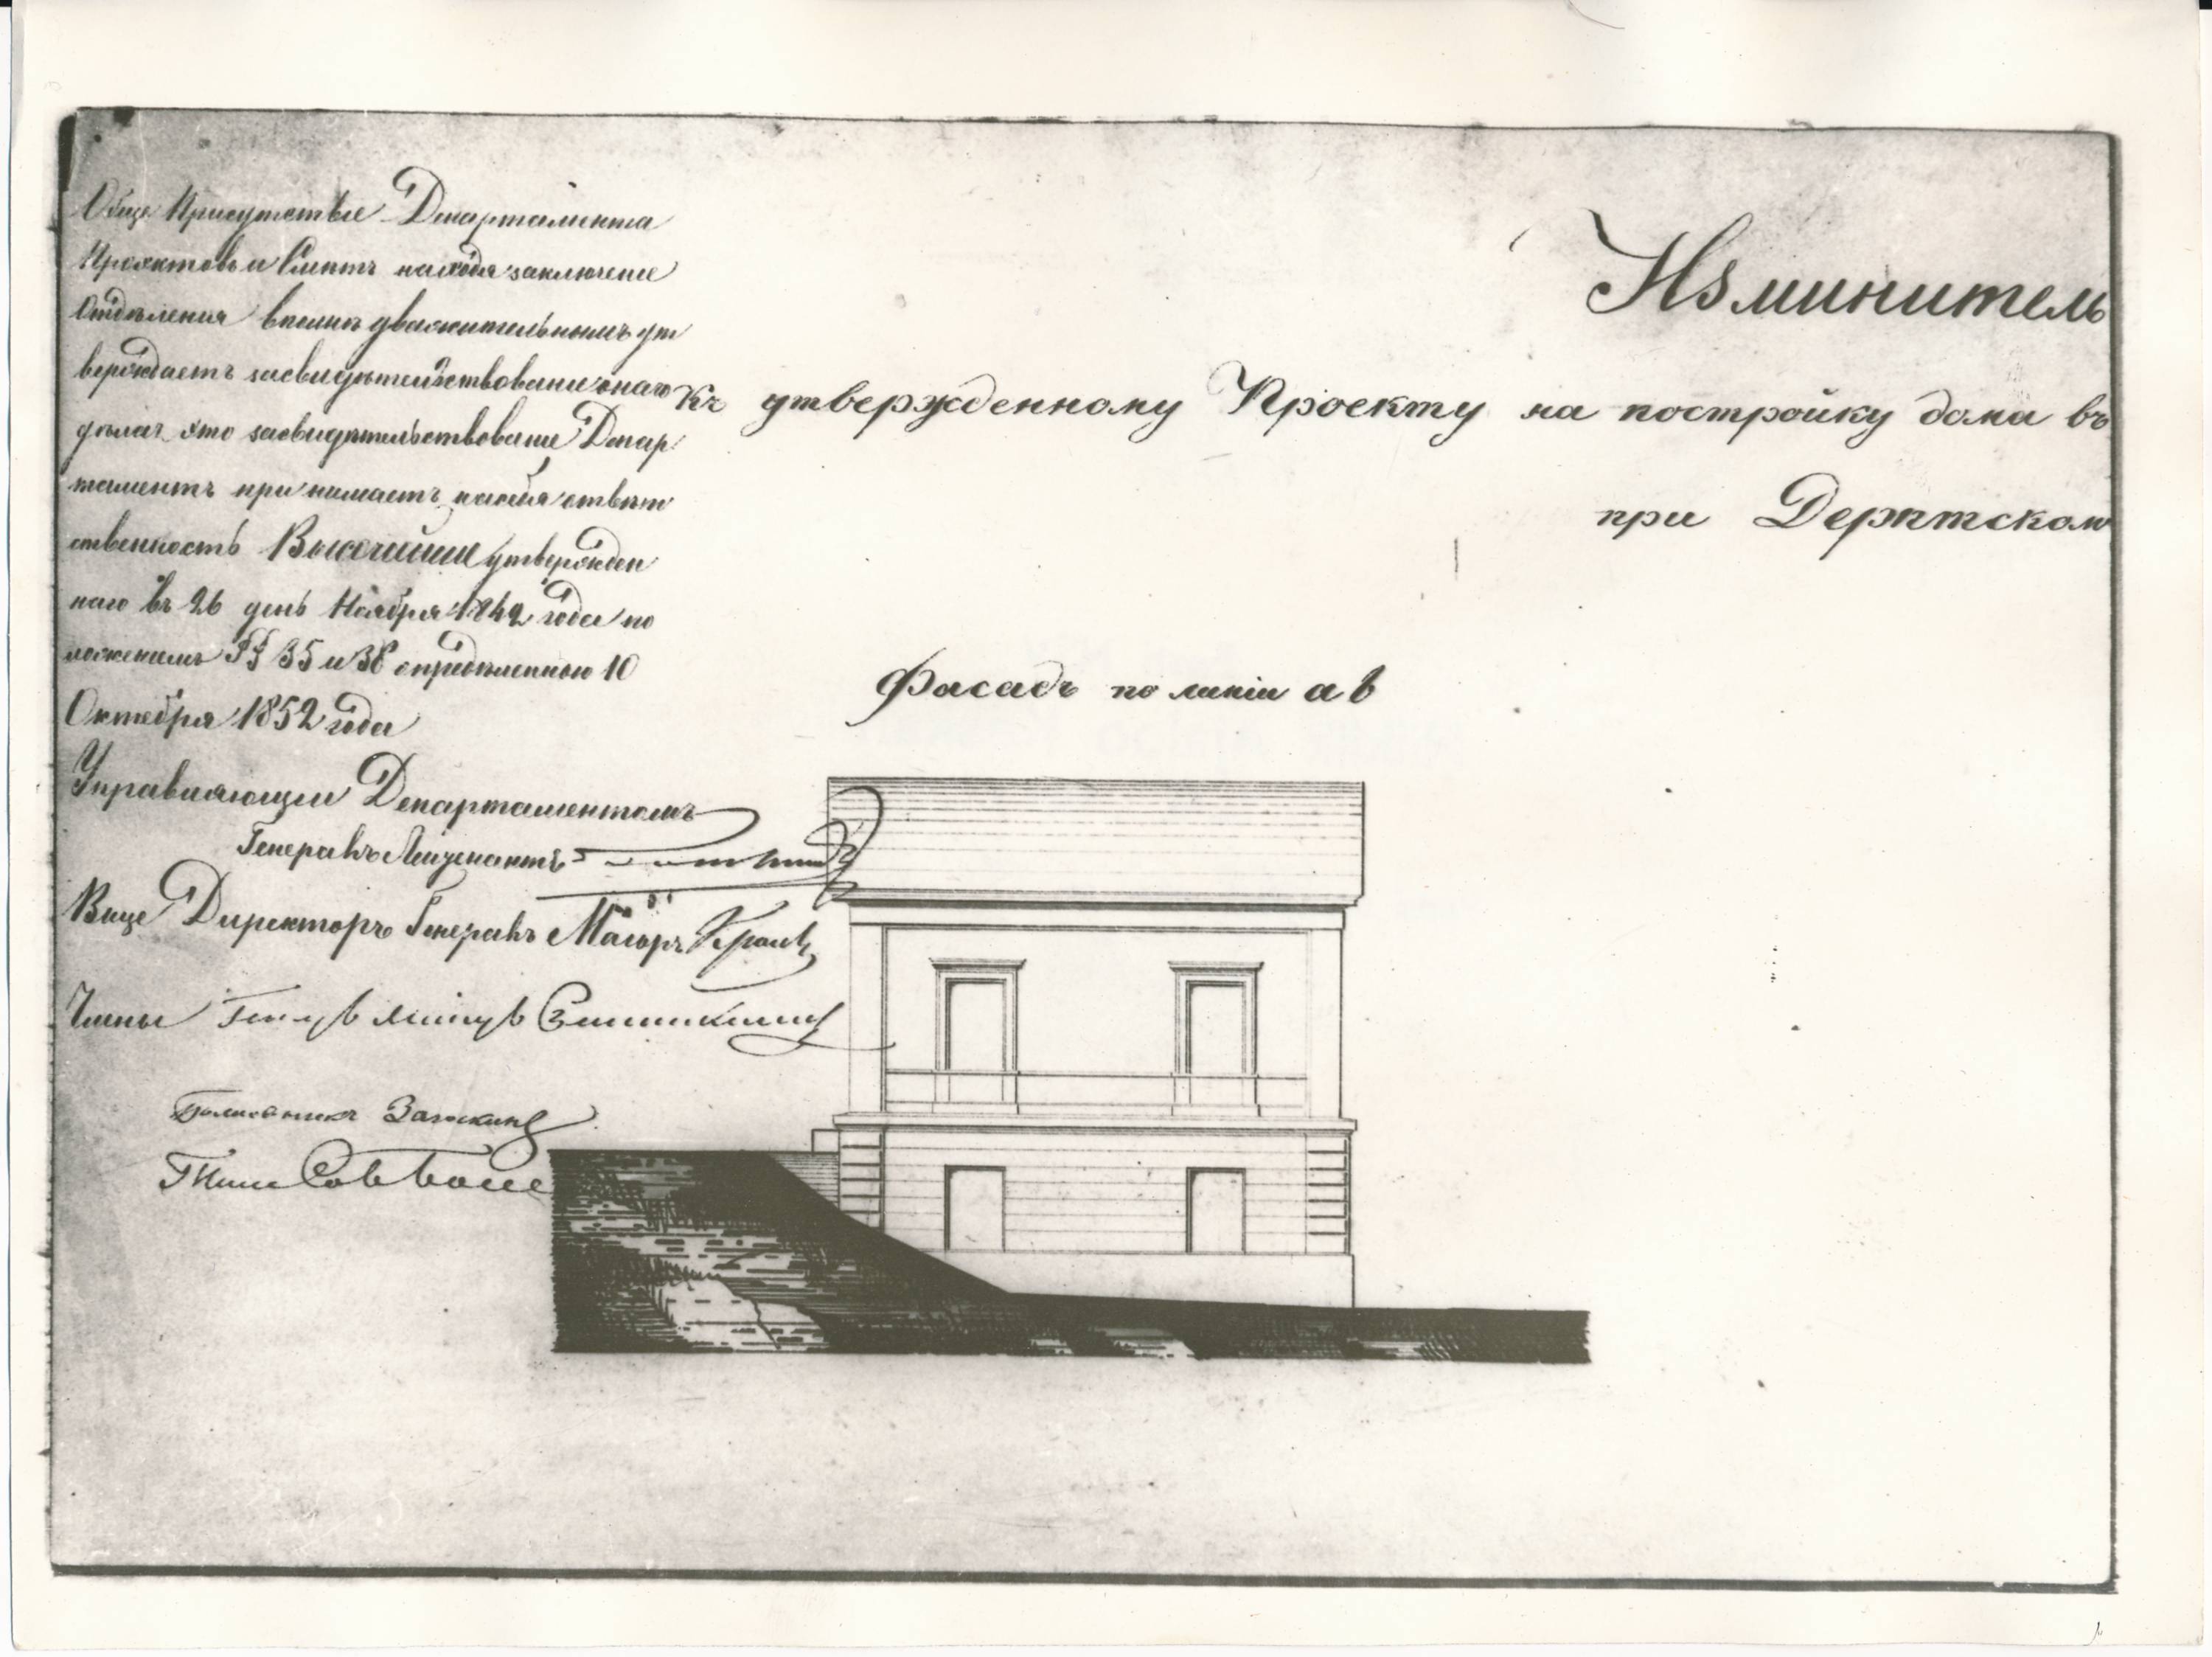 Общее Присутствіе Департамента
Проэктовъ и Смѣтъ находя заключеніе
Отдѣленія вполнѣ уважительнымъ ут
верждаетъ засвидѣтельствованіе онаго
дѣлая это засвидѣтельствованіе Депар
таментъ принимаетъ на себя отвѣт
ственность Высочайше утвержден
наго въ 26 день Ноября 1842 года по
ложенiемъ §§ 35 и 38 опредѣленную 10
Октября 1852 года
Управляющій Департаментомъ
Генералъ Лейтенантъ
Вице Директоръ Генералъ Маіоръ
Члены
Полковникъ
Измѣнитель
Къ утвержденному Проекту на постройку дома въ
при Дерптском
Фасадъ по линіи а в